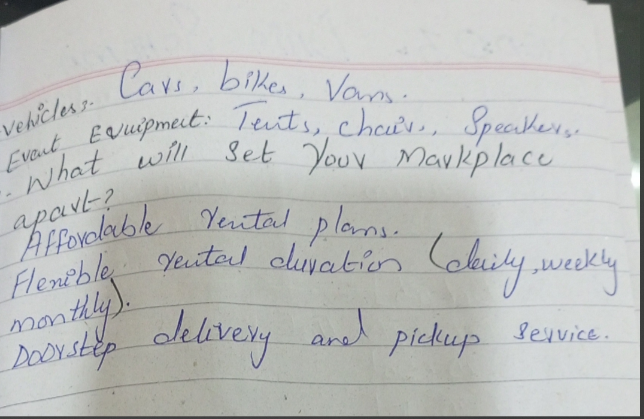 vehicles:- Cars, bikes, Vans.
Event Equipment: Tents, chairs, Speakers.
. What will Set Your Markplace
apart?
Affordable rental plans.
Flexible rental duration (daily, weekly
monthly).
Doorstep delivery and pickup Service.